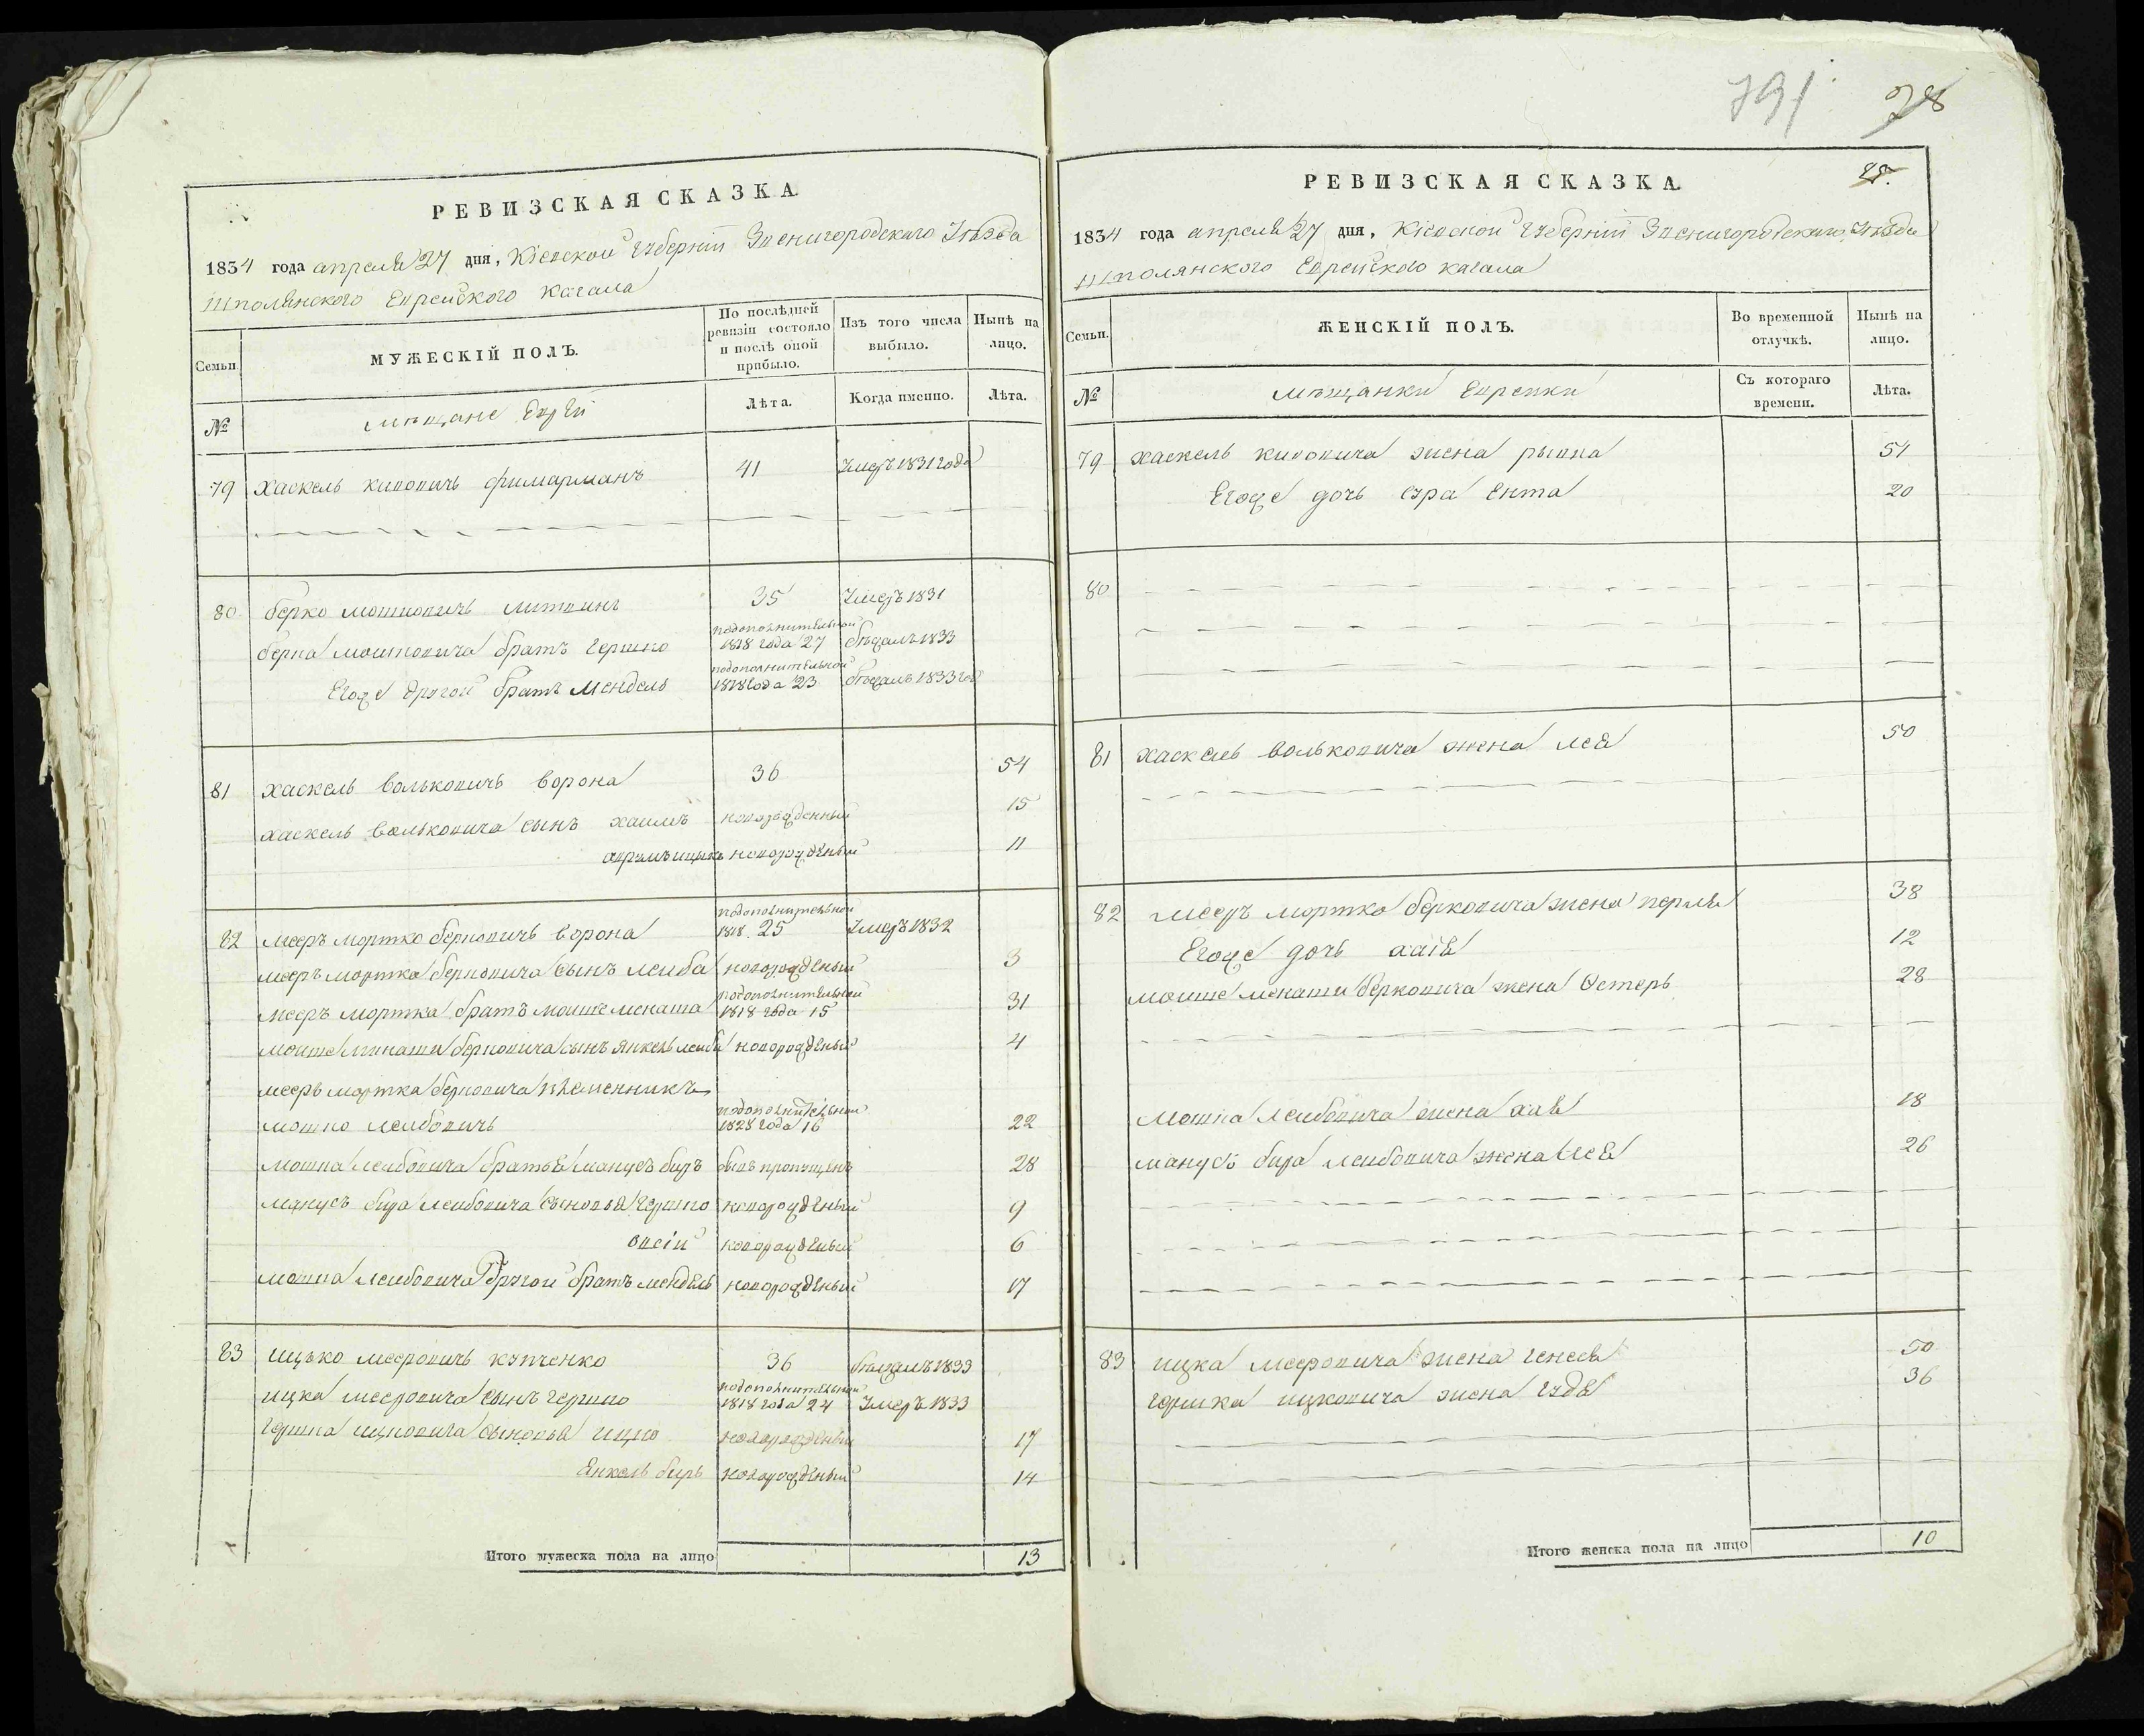 791 78
РЕВИЗСКАЯ СКАЗКА.
1834 года апреля 27 дня, Кіевской Губерніи Звенигородского Уѣзда
Шполянского Еврейского кагала
Семьи. МУЖЕСКІЙ ПОЛЪ. По послѣдней ревизіи состояло и послѣ оной прибыло. Изъ того числа выбыло. Нынѣ на лицо.
№ мѣщане Евреи Лѣта. Когда именно. Лѣта.
79 хаскель кивовичь фимарманъ 41 Умеръ 1831 года
80 берко мошковичь литвинъ 35 Умеръ 1831
берка мошковича братъ гершко подополнительной 1818 года 27 бѣжалъ 1833
Егоже другой братъ мендель подополнительной 1818 года 23 бѣжалъ 1833 год
81 хаскель вольковичь ворона 36 54
хаскель вольковича сынъ хаимъ новорожденный 15
аврамъ ицыкъ новорожденый 11
82 мееръ мортко берковичь ворона подополнительной 1818. 25 Умеръ 1832
мееръ мортка берковича сынъ лейба новорожденый 3
мееръ мортка братъ мошке менаша подополнительной 1818 года 15 31
мошке минаши берковича сынъ янкель лейба новорожденый 4
мееръ мортка берковича племенникъ
мошко лейбовичь подополнительной 1828 года 16 22
мошка лейбовича братья манусъ беръ былъ пропущенъ 28
манусъ бера лейбовича сыновья гершко новорожденый 9
овсій новорожденый 6
мошка лейбовича другой братъ мендель новорожденый 17
83 ицько мееровичь купченко 36 бѣжалъ 1833
ицка мееровича сынъ гершко подополнительной 1818 года 24 Умеръ 1833
гершка ицковича сыновья ицко новорожденый 17
Янкель беръ новорожденый 14
Итого мужеска пола на лицо 13
РЕВИЗСКАЯ СКАЗКА.
1834 года апреля 27 дня, Кіевской Губерніи Звенигородского Уѣзда
Шполянского Еврейского кагала
Семьи. ЖЕНСКІЙ ПОЛЪ. Во временной отлучкѣ. Нынѣ на лицо.
№ мѣщанки Еврейки Съ котораго времени. Лѣта.
79 хаскель кивовича жена рывка 51
Егоже дочь сура Ента 20
80
81 хаскель вольковича жена лея 50
82 мееръ мортко берковича жена перля 38
Егоже дочь хаія 12
мошке менаши берковича жена Естерь 28
мошка лейбовича жена хая 18
манусъ бера лейбовича жена лея 26
83 ицка мееровича жена генеся 50
гершка ицковича жена гудя 36
Итого женска пола на лицо 10